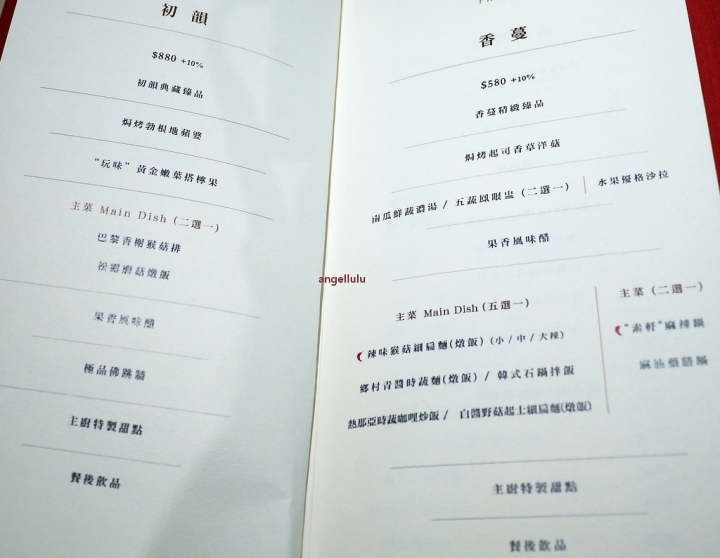 初韻
$880 +10%
初韻典藏臻品
焗烤勃根地蘋婆
“玩味”黃金嫩葉搭檸果
主菜 Main Dish (二選一)
巴黎香榭猴菇排
松露蘑菇燉飯
果香風味醋
極品佛跳牆
主廚特製甜點
餐後飲品
香蔓
$580 +10%
香蔓精緻臻品
焗烤起司香草洋菇
南瓜鮮蔬濃湯 / 五蔬鳳眼盅 (二選一)
水果優格沙拉
果香風味醋
主菜 Main Dish (五選一)
辣味猴菇細扁麵(燉飯) (小 / 中 / 大辣)
鄉村青醬時蔬麵(燉飯) / 韓式石鍋拌飯
熱那亞時蔬咖哩炒飯 / 白醬野菇起士細扁麵(燉飯)
主菜 (二選一)
“素軒”麻辣鍋
麻油藥膳鍋
主廚特製甜點
餐後飲品
angellulu